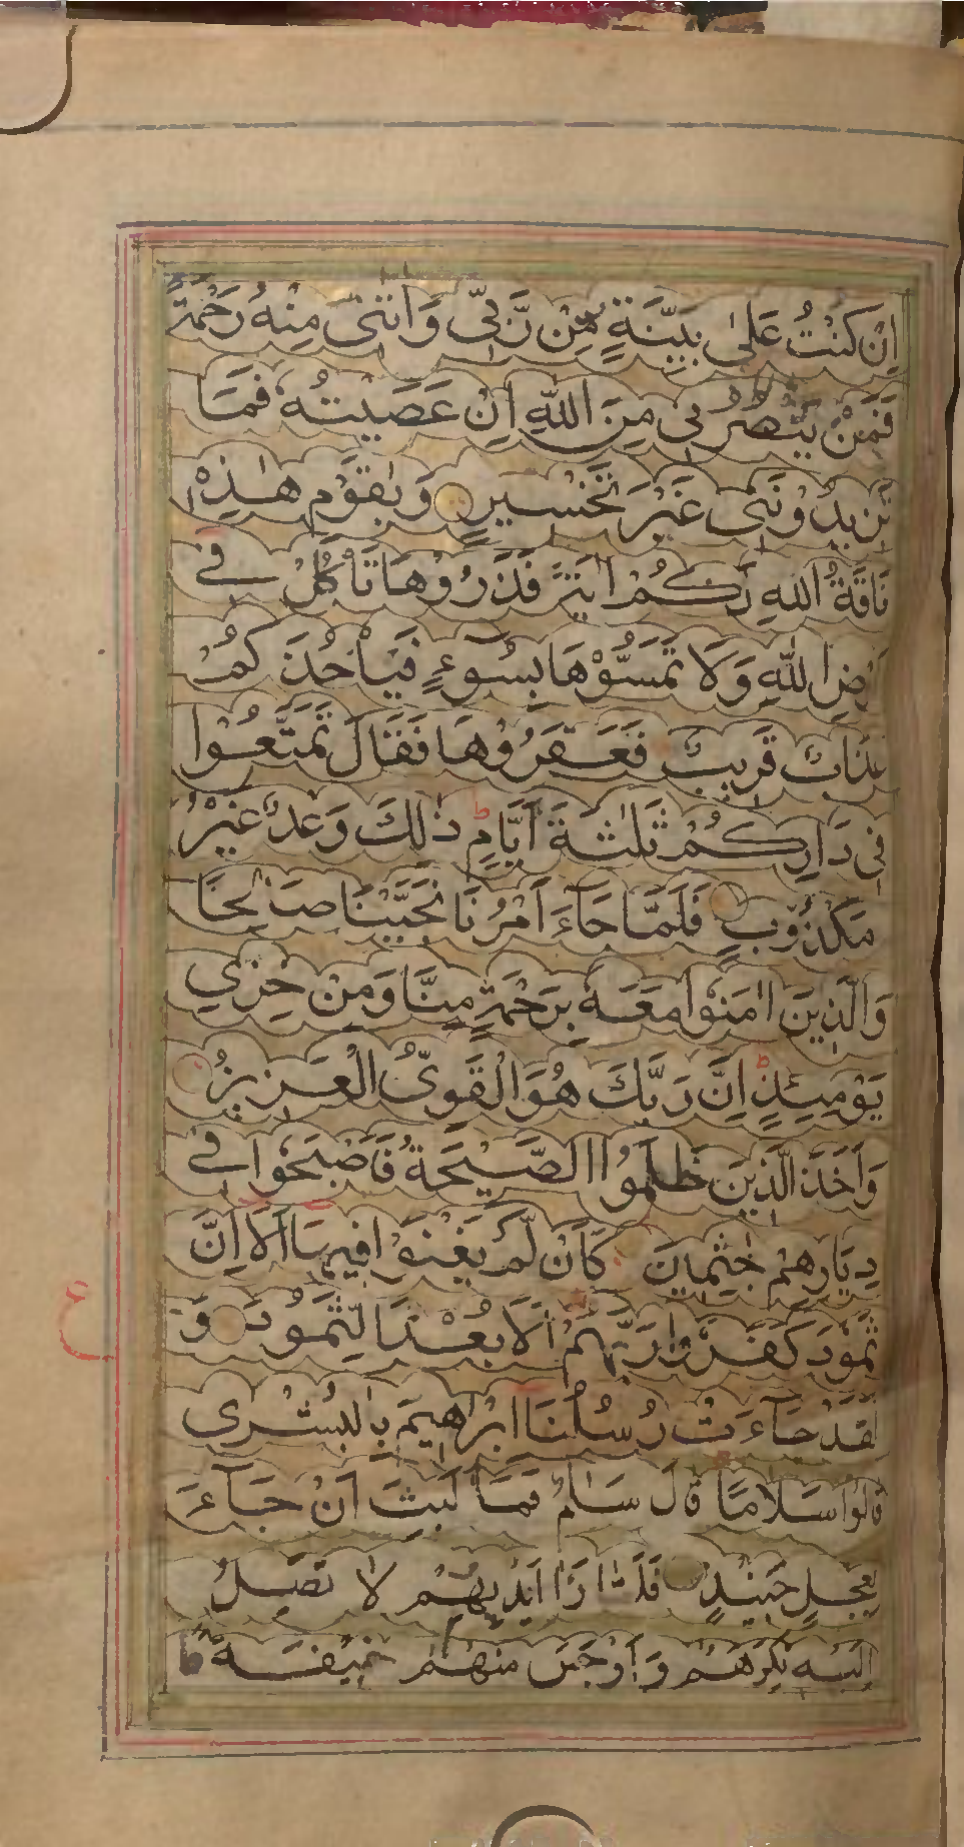 اِنْ كُنْتُ عَلٰى بَيِّنَةٍ مِّنْ رَّبِّىْ وَاٰتٰىنِىْ مِنْهُ رَحْمَةً
فَمَنْ يَّنْصُرُنِىْ مِنَ اللّٰهِ اِنْ عَصَيْتُهٗ فَمَا
تَزِيْدُوْنَنِىْ غَيْرَ تَخْسِيْرٍ وَيٰقَوْمِ هٰذِهٖ
نَاقَةُ اللّٰهِ لَكُمْ اٰيَةً فَذَرُوْهَا تَاْكُلْ فِىْ
اَرْضِ اللّٰهِ وَلَا تَمَسُّوْهَا بِسُوْٓءٍ فَيَاْخُذَكُمْ
عَذَابٌ قَرِيْبٌ فَعَقَرُوْهَا فَقَالَ تَمَتَّعُوْا
فِىْ دَارِكُمْ ثَلٰثَةَ اَيَّامٍ ط ذٰلِكَ وَعْدٌ غَيْرُ
مَكْذُوْبٍ فَلَمَّا جَآءَ اَمْرُنَا نَجَّيْنَا صٰلِحًا
وَّالَّذِيْنَ اٰمَنُوْا مَعَهٗ بِرَحْمَةٍ مِّنَّا وَمِنْ خِزْىِ
يَوْمِئِذٍ ط اِنَّ رَبَّكَ هُوَ الْقَوِىُّ الْعَزِيْزُ
وَاَخَذَ الَّذِيْنَ ظَلَمُوا الصَّيْحَةُ فَاَصْبَحُوْا فِىْ
دِيَارِهِمْ جٰثِمِيْنَ كَاَنْ لَّمْ يَغْنَوْا فِيْهَا اَلَا اِنَّ
ثَمُوْدَ كَفَرُوْا رَبَّهُمْ اَلَا بُعْدًا لِّثَمُوْدَ وَ
ع
لَقَدْ جَآءَتْ رُسُلُنَا اِبْرٰهِيْمَ بِالْبُشْرٰى
قَالُوْا سَلَامًا قَالَ سَلٰمٌ فَمَا لَبِثَ اَنْ جَآءَ
بِعِجْلٍ حَنِيْذٍ فَلَمَّا رَاٰ اَيْدِيَهُمْ لَا تَصِلُ
اِلَيْهِ نَكِرَهُمْ وَاَوْجَسَ مِنْهُمْ خِيْفَةً ط